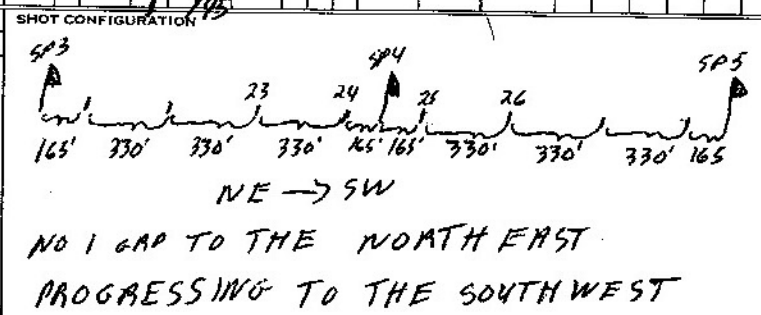 SHOT CONFIGURATION
SP3 SP4 SP5
23 24 25 26
165' 330' 330' 330' 165' 165' 330' 330' 330' 165
NE → SW
NO 1 GAP TO THE NORTH EAST
PROGRESSING TO THE SOUTHWEST